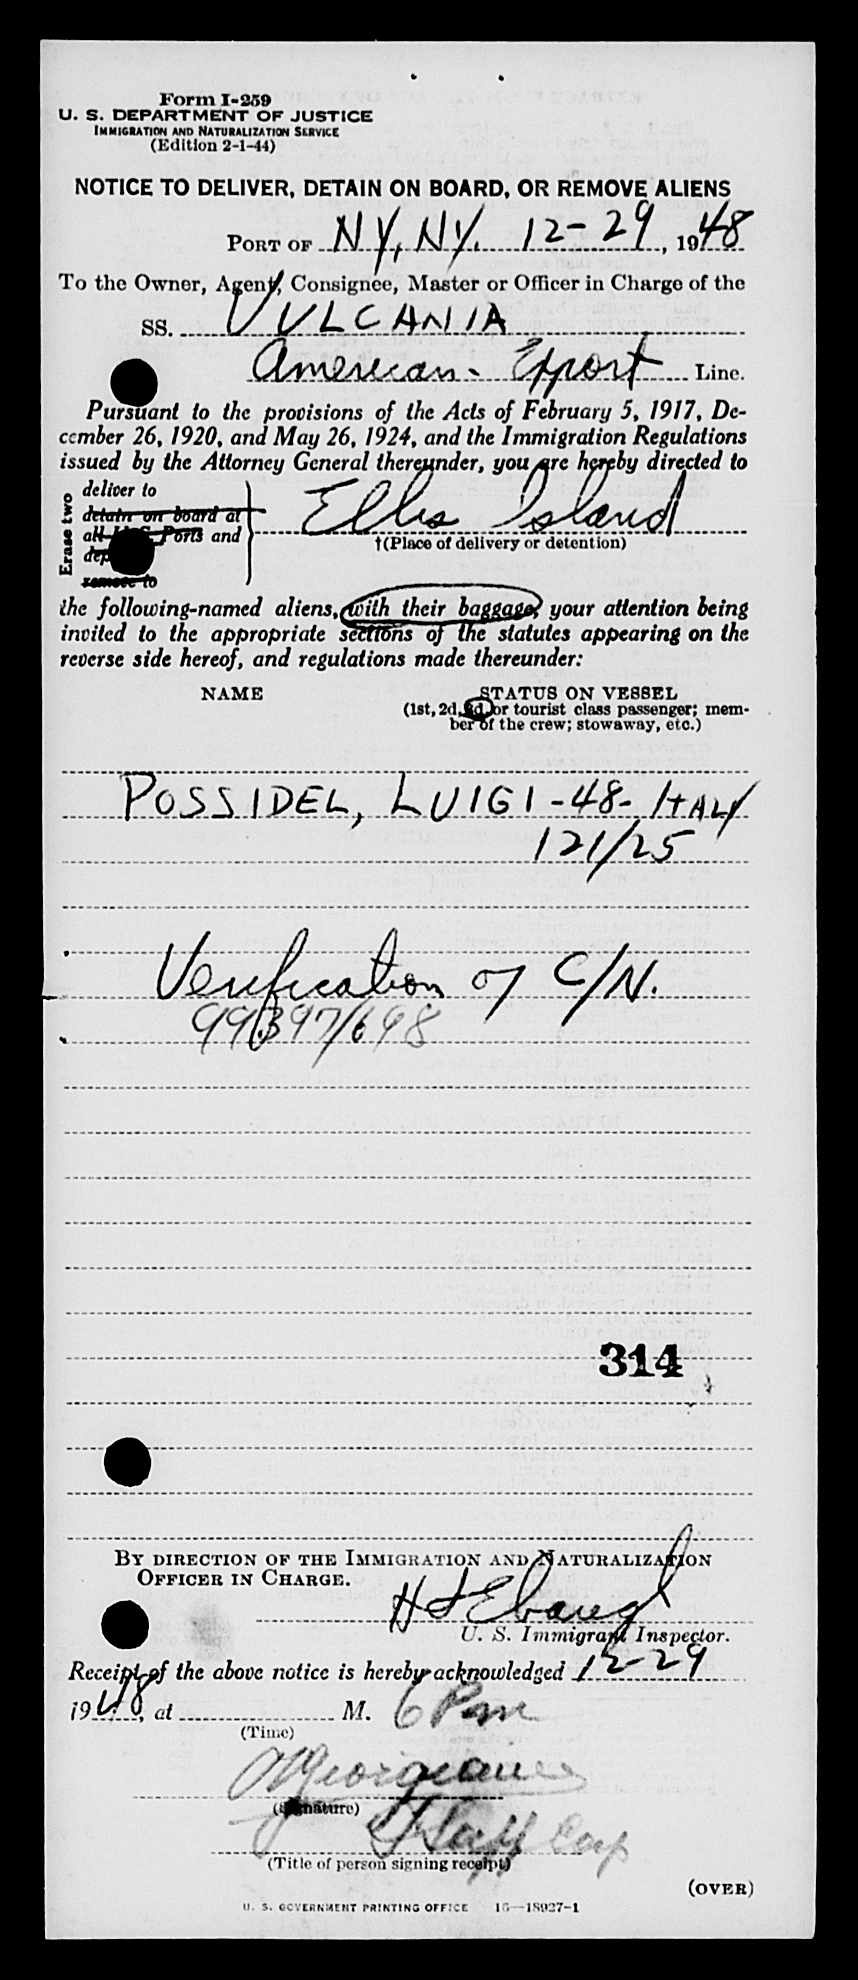 Form I-259
U. S. DEPARTMENT OF JUSTICE
IMMIGRATION AND NATURALIZATION SERVICE
(Edition 2-1-44)
NOTICE TO DELIVER, DETAIN ON BOARD, OR REMOVE ALIENS
PORT OF NY, NY. 12-29, 1948
To the Owner, Agent, Consignee, Master or Officer in Charge of the
SS. VULCANIA
American-Export Line.
Pursuant to the provisions of the Acts of February 5, 1917, De-
cember 26, 1920, and May 26, 1924, and the Immigration Regulations
issued by the Attorney General thereunder, you are hereby directed to
Erase two
deliver to
detain on board at
all U. S. Ports and
remove to
Ellis Island
†(Place of delivery or detention)
the following-named aliens, with their baggage, your attention being
invited to the appropriate sections of the statutes appearing on the
reverse side hereof, and regulations made thereunder:
NAME STATUS ON VESSEL
(1st, 2d, 3d, or tourist class passenger; mem-
ber of the crew; stowaway, etc.)
POSSIDEL, LUIGI-48-ITALY
121/25
Verification of C/N.
99397/698
314
BY DIRECTION OF THE IMMIGRATION AND NATURALIZATION
OFFICER IN CHARGE.
Ebaugh
U. S. Immigrant Inspector.
Receipt of the above notice is hereby acknowledged 12-29
1948, at M. 6 Pm
(Time)
(Signature)
(Title of person signing receipt)
(OVER)
U. S. GOVERNMENT PRINTING OFFICE 16—18927-1